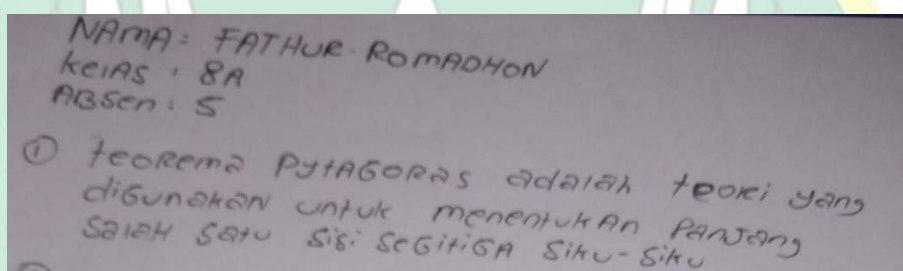 NAMA : FATHUR ROMADHON
kelAS : 8A
ABSen : 5
① teoRema PytAGORAS adalah teori yang
diGunakan untuk menentukAn PanJang
SalaH Satu Sisi SeGitiGA Siku-Siku